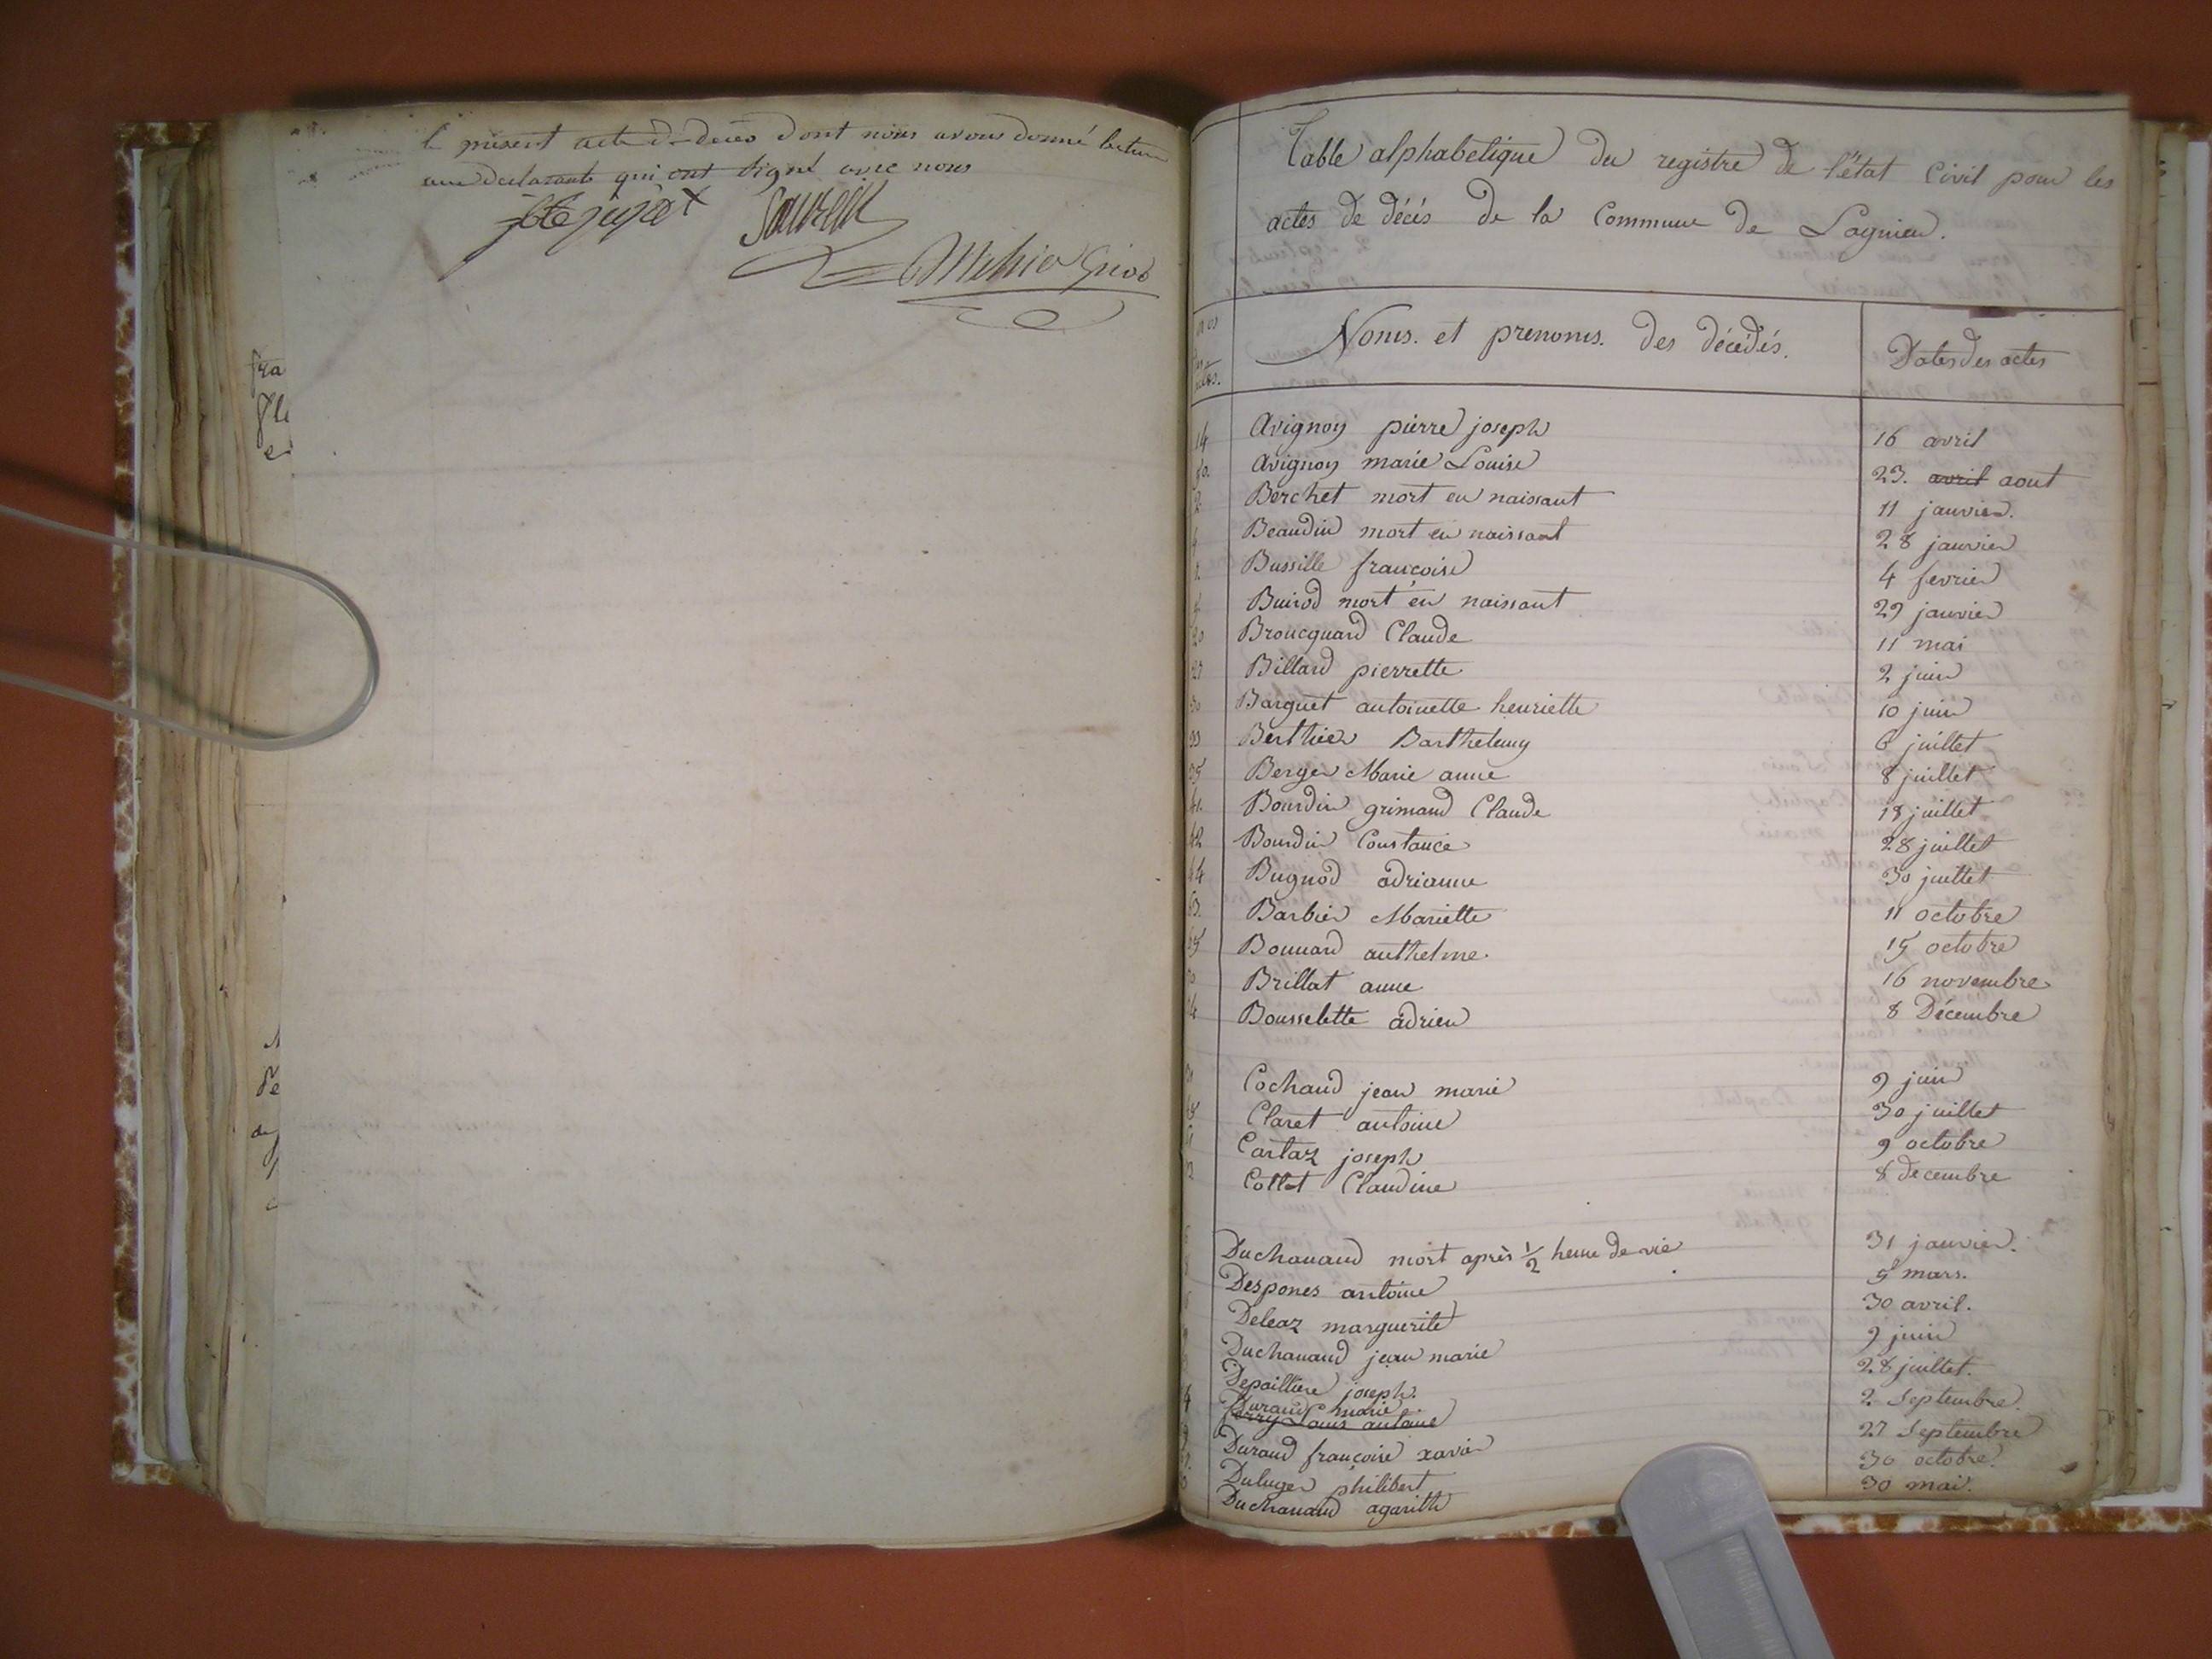 le présent acte de décès dont nous avons donné lecture
aux déclarants qui ont signé avec nous
fra
de
Table alphabetique du registre de l'état Civil pour les
actes de décés de la Commune de Lagnieu.
nos des actes.
Noms. et prenoms. des décédés.
Dates des actes
14 Avignon pierre joseph 16 avril
50. Avignon marie Louise 23. avril aout
2 Berchet mort en naissant 11 janvier.
4 Beaudin mort en naissant 28 janvier
Bussille françoise 4 fevrier
5 Buirod mort en naissant 29 janvier
20 Broucquard Claude 11 mai
27 Billard pierrette 2 juin
30 Barquet antoinette henriette 10 juin
33 Berthier Barthelemy 6 juillet
35 Berger Marie anne 8 juillet
41. Bourdin grimaud Claude 18 juillet
42 Bourdin Constance 28 juillet
44 Bugnod adrianne 30 juillet
63. Barbier Mariette 11 octobre
65 Bonnard anthelme. 15 octobre
Brillat anne 16 novembre
Bousselette adrien 8 Décembre
Cochaud jean marie 9 juin
Claret antoine 30 juillet
Cartaz joseph 9 octobre
Collet Claudine 8 decembre
Duchanaud mort après 1/2 heure de vie 31 janvier.
Despones antoine 5 mars.
Deleaz marguerite 30 avril.
Duchanaud jean marie 9 juin
Depaillere joseph. 28 juillet.
Durand marie 2 Septembre.
ferry Louis antoine
Durand françoise xavier 27 Septembre
Duluger philibert 30 octobre.
Duchanaud agarithe 30 mai.